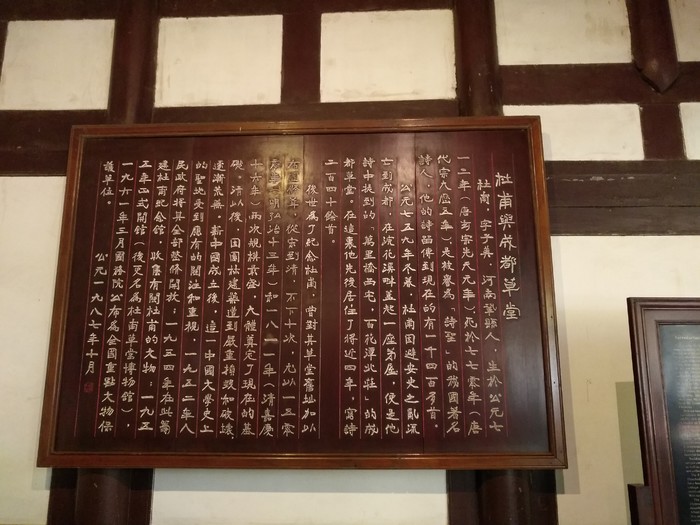 杜甫與成都草堂
杜甫,字子美,河南鞏縣人,生於公元七
一二年(唐玄宗先天元年),死於七七零年(唐
代宗大曆五年),是被譽為「詩聖」的我國著名
詩人,他的詩留傳到現在的有一千四百多首。
公元七五九年冬暮,杜甫因避安史之亂流
亡到成都,在浣花溪畔蓋起一座茅屋,便是他
詩中提到的「萬里橋西宅,百花潭北莊」的成
都草堂。在這裏他先後居住了將近四年,寫詩
二百四十餘首。
後世為了紀念杜甫,曾對其草堂舊址加以
修葺,從宋到清,不下十次,尤以一五零
零年(明弘治十三年)和一八一一年(清嘉慶
十六年)兩次規模最盛,大體奠定了現在的基
礎。清以後,因園林建築遭到嚴重損毀和破壞,
逐漸荒蕪。新中國成立後,這一中國文學史上
的聖地受到應有的關注和重視,一九五二年人
民政府將其全部整修開放;一九五四年在此籌
建杜甫紀念館,收集有關杜甫的文物;一九五
五年正式開館(後更名為杜甫草堂博物館),
一九六一年三月國務院公布為全國重點文物保
護單位。
公元一九八七年十月